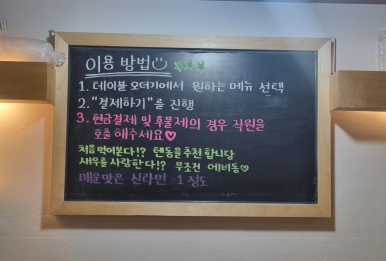 이용 방법
1. 테이블 오더기에서 원하는 메뉴 선택
2. "결제하기"를 진행
3. 현금결제 및 후불제의 경우 직원을
호출 해주세요♡
처음 먹어본다!? 텐동을 추천합니다
새우를 사랑한다!? 무조건 에비동♡
매운맛은 신라면 -1 정도